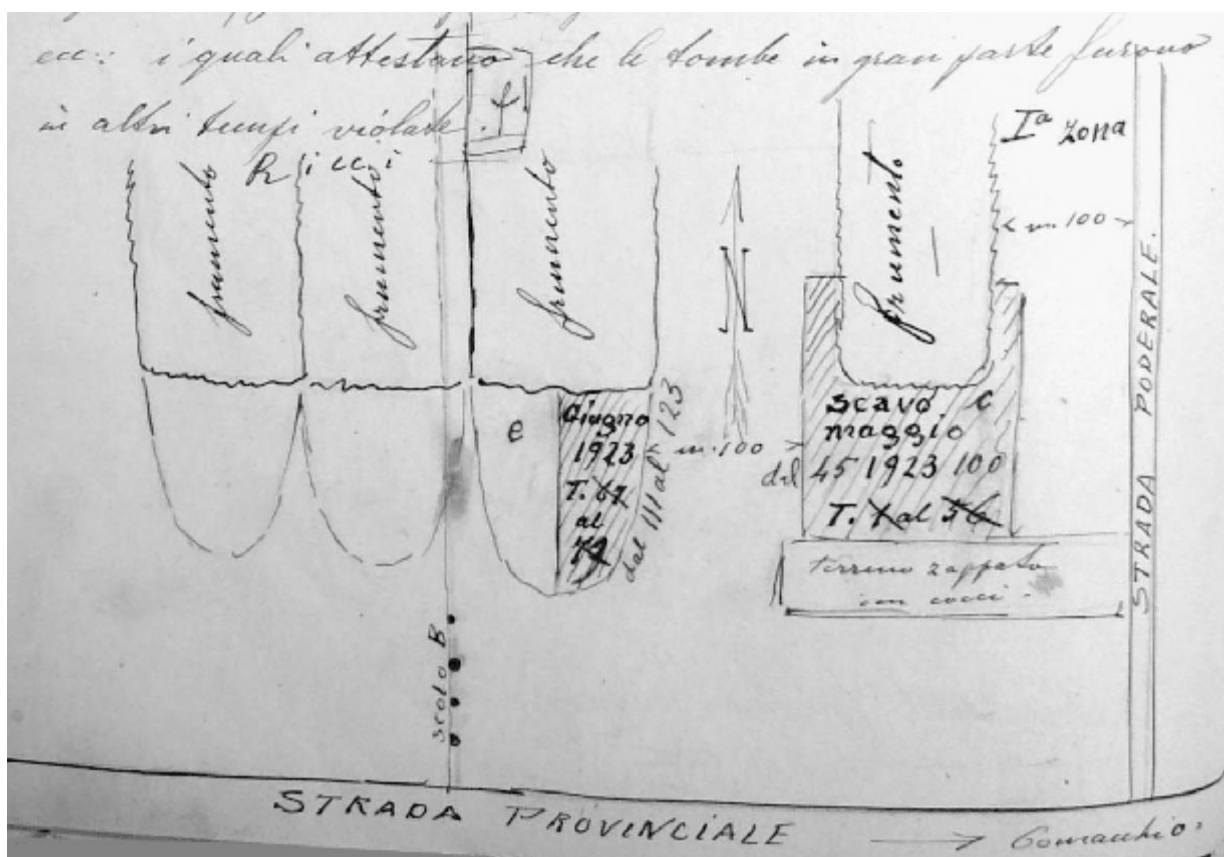 ecc: i quali attestano che le tombe in gran parte furono
in altri tempi violate.
f
Ricci
frumento
frumento
frumento
N
frumento
Iª Zona
m. 100
STRADA PODERALE.
e
Giugno
1923
T. 67
al
72
dal 111 al 123
m. 100
scavo C
maggio
dal 45 1923 100
T. 1 al 56
terreno zappato
con cocci.
scolo B
STRADA PROVINCIALE
Comacchio